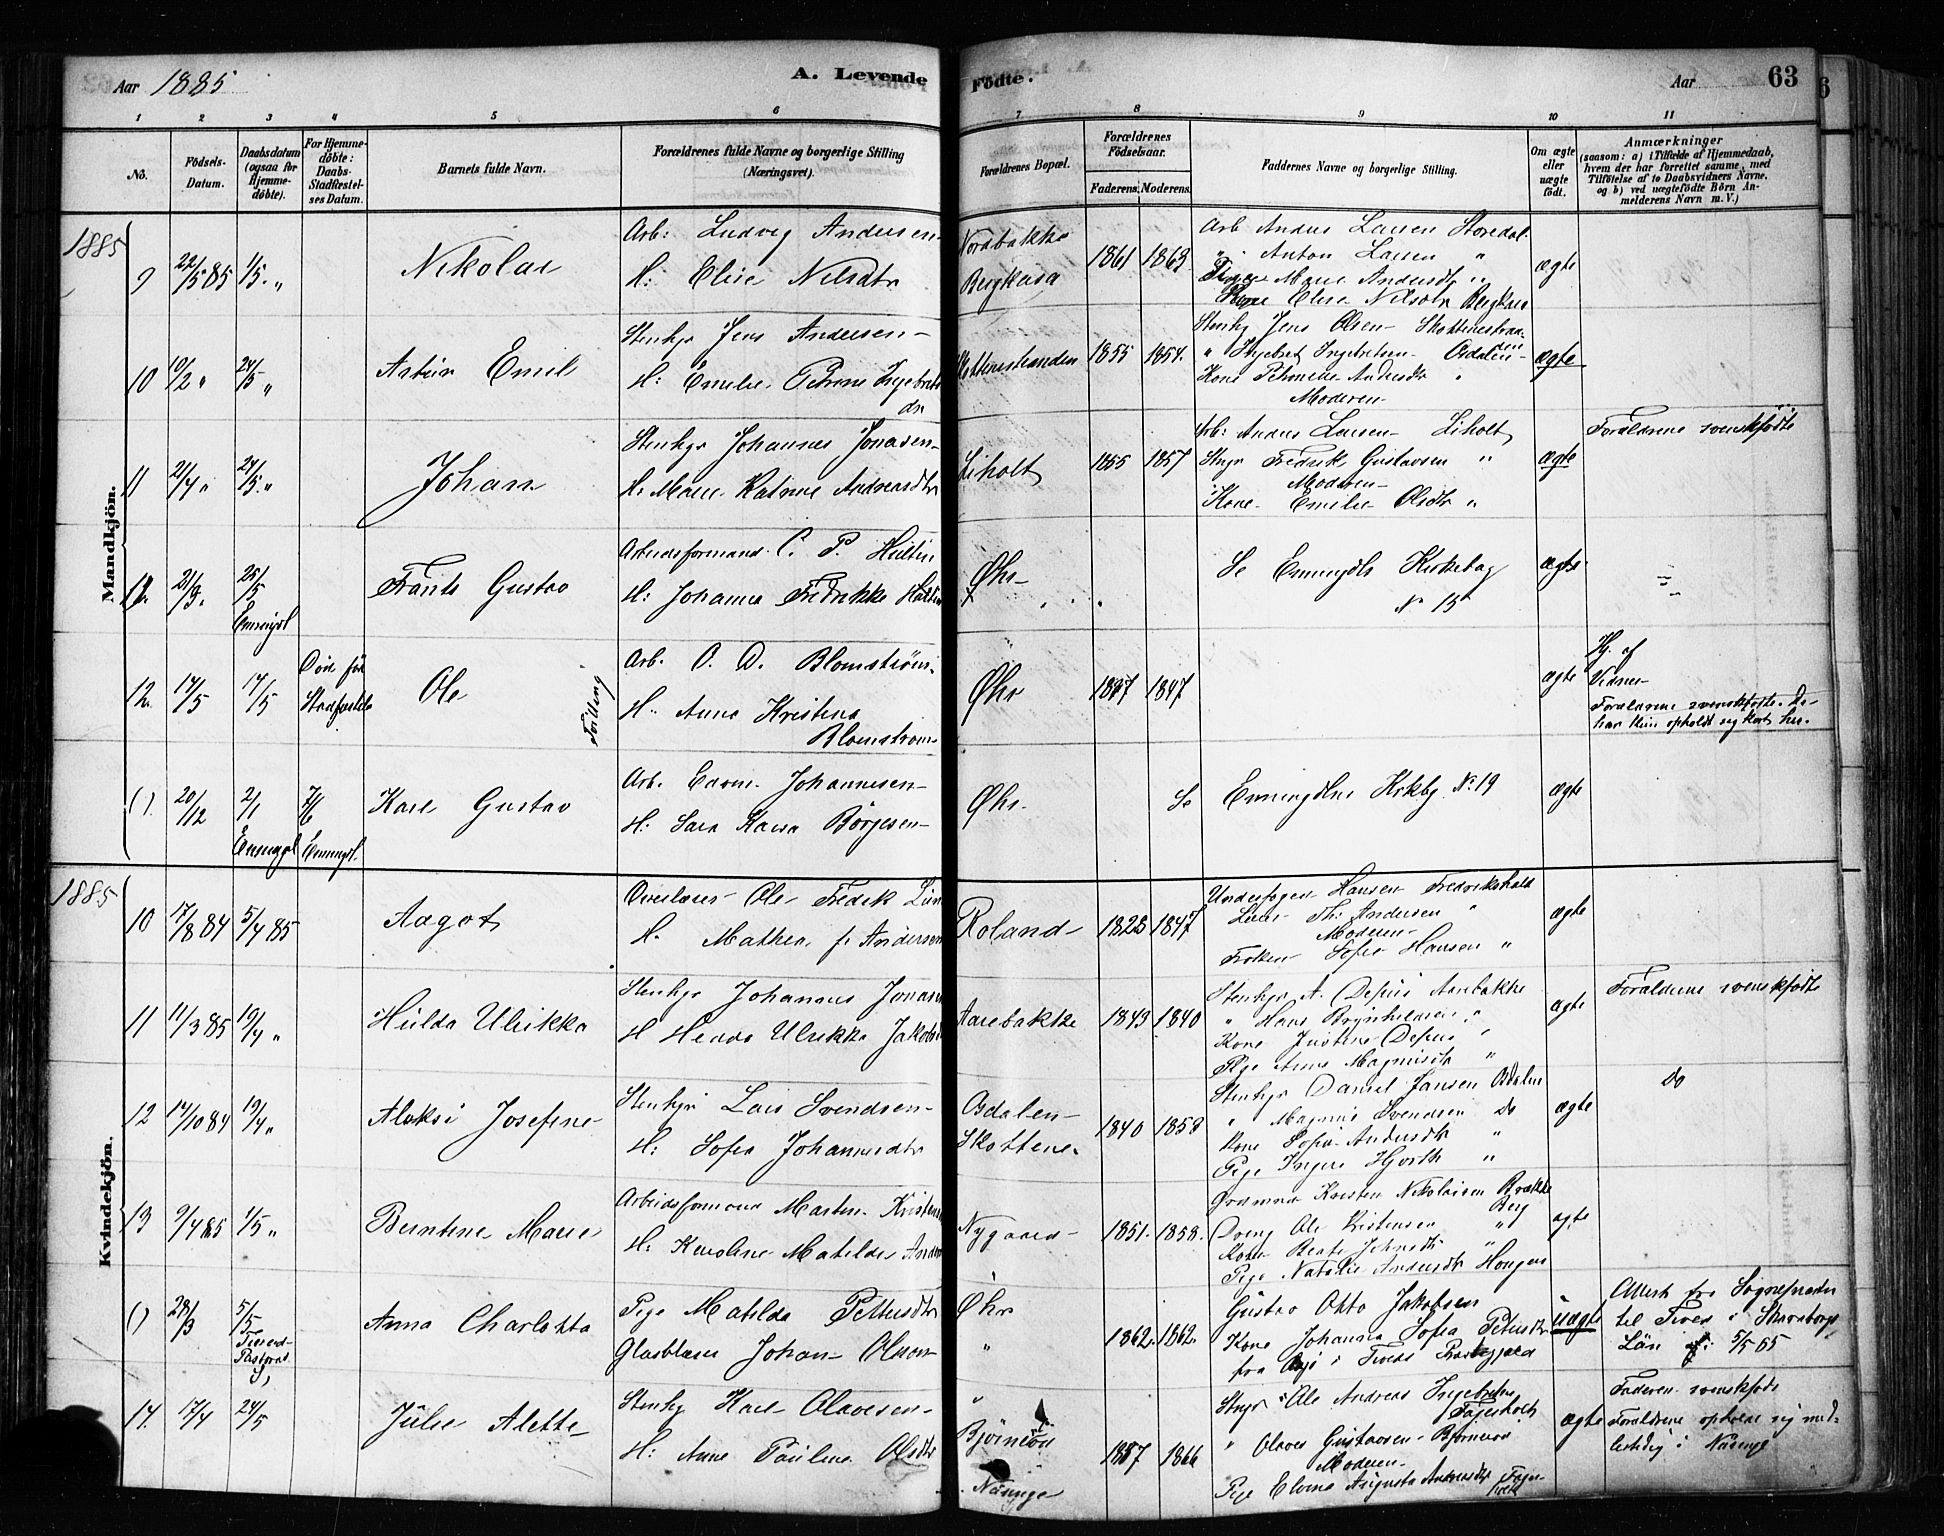 Aar 1885
A. Levende
Födte.
Aar
63
1 2 3 4 5 6 7 8 9 10 11
No.
Födsels-
Datum.
Daabsdatum
(ogsaa for
Hjemme-
döbte).
For Hjemme-
döbte:
Daabs-
Stadfestel-
ses Datum.
Barnets fulde Navn.
Forældrenes fulde Navne og borgerlige Stilling
(Næringsvei).
Forældrenes Bopæl.
Forældrenes
Födselsaar.
Faderens. Moderens.
Faddernes Navne og borgerlige Stilling.
Om ægte
eller
uægte
födt.
Anmærkninger
(saasom: a) i Tilfælde af Hjemmedaab,
hvem der har forrettet samme, med
Tilföielse af to Daabsvidners Navne,
og b) ved uægtefödte Börn An-
melderens Navn m. V.)
Mandkjön.
1885
9
22/5 85
1/5 "
Nikolai
Arb: Ludvig Andersen
H: Elise Nilsdtr
Nordbakke
Bergkasa
1861 1863
Arb Anders Larsen Storedal
" Anton Larsen "
Pige Marie Andersdtr "
Kone Elise Nilsdtr Bergkasa
ægte
10
10/2 "
24/5 "
Artur Emil
Stenhgr Jens Andersen
H: Emelie Petrine Ingebrets
dtr
Skottenestranden
1855 1854.
Stenhg Jens Olsen Skottenestran-
den
" Ingebret Ingebretsen Osdalen
Kone Petronille Andersdtr "
Moderen
ægte
11
21/4 "
24/5 "
Johan
Stenhgr Johannes Jonasen
H: Marie Katrine Andreasdtr
Liholt
1855 1857
Arb: Anders Larsen Liholt
Stngr Fredrik Gustavsen "
Moderen
Kone Emilie Olsdtr "
ægte
Forældrene svenskfödte
21/3.
25/5
Enningdl
Frants Gustav
Arbeidsformand C. P. Hultin
H: Johanna Fredrikke Hultin
Øhr
Se Enningdls Kirkebog
No 15
ægte
12.
14/5
17/5
Död för
Stadfestelse
Ole
Tvilling
Arb. O. D. Blomström
H: Anna Kristina
Blomstrom
Øhr
1847
ægte
Hj. af
Vidner
Forældrene svenskfödte. De
har kun opholdt sig kort her.
( )
20/12
2/1
Enningdl
7/6
Enningdl.
Karl Gustav
Arb. Edvin Johannesen
H: Sara Kaisa Börjesen
Øhr.
Se Enningdlns Kirkbg No 19
ægte
Kvindekjön.
1885
10
17/8 84
5/4 85
Aagot
Overlærer Ole Fredrik Lun
H. Mathea f. Andersen
Roland
1828 1847
Underfoged Hansen Fredrikshald
Lærer Th: Andersen "
Moderen
Fröken Sofie Hansen "
ægte
11
11/3 85
19/4 "
Hulda Ulrikka
Stenhgr Johannes Jonasen
H Hedda Ulrikka Jakobsd
Aarebakke
1843 1840
Stenhgr A. Depui Aarebakke
" Hans Brynhildsen "
Kone Justine Depui "
Pige Anne Magnusdtr "
ægte
Forældrene svenskfödte
12
14/10 84
19/4 "
Aleksi Josefine
Stenhgr Lars Svendsen
H: Sofia Johannesdtr
Osdalen
Skottene.
1840 1858
Stenhgr Daniel Jansen Osdalen
" Magnus Svendsen Do
Kone Sofia Andersdtr "
Pige Ingeri Hjorth "
ægte
Do
13
9/4 85
1/5 "
Berntine Marie
Arbeidsformand Martin Kristens
H: Karoline Matilde Anders
Nygaard
1851. 1858.
Gaardmd Kristen Nikolaisen Brække
Berg
Dreng Ole Kristensen "
Kone Beate Johnsdtr "
Pige Natalie Andersdtr Haugen
ægte
( )
28/3
5/5
Anna Charlotta
Pige Matilda Pettersdtr
Glasblæser Johan Olsson
Øhr
"
1862. 1862.
Gustav Otto Jakobsen
Kone Johanna Sofia Petersdtr
fra i Tived Prestegjæld
uægte
Attest fra Sognepresten
til Tived i Skaraborgs
Län af 5/5 85
14.
17/4
24/5
Julie Alette
Stenhg Karl Olavesen
H: Anne Pauline Olsdtr
"
Björneröd
Näsinge
1857 1866
Stngr Ole Andreas Ingebretsen
Fagerholt
" Olaves Gustavsen Björneröd
Moderen
Pige Elvine Augusta Andreasdtr Fager-
holt
ægte
Faderen svenskfödt
Forældrene opholde sig mid-
lertidig i Näsinge